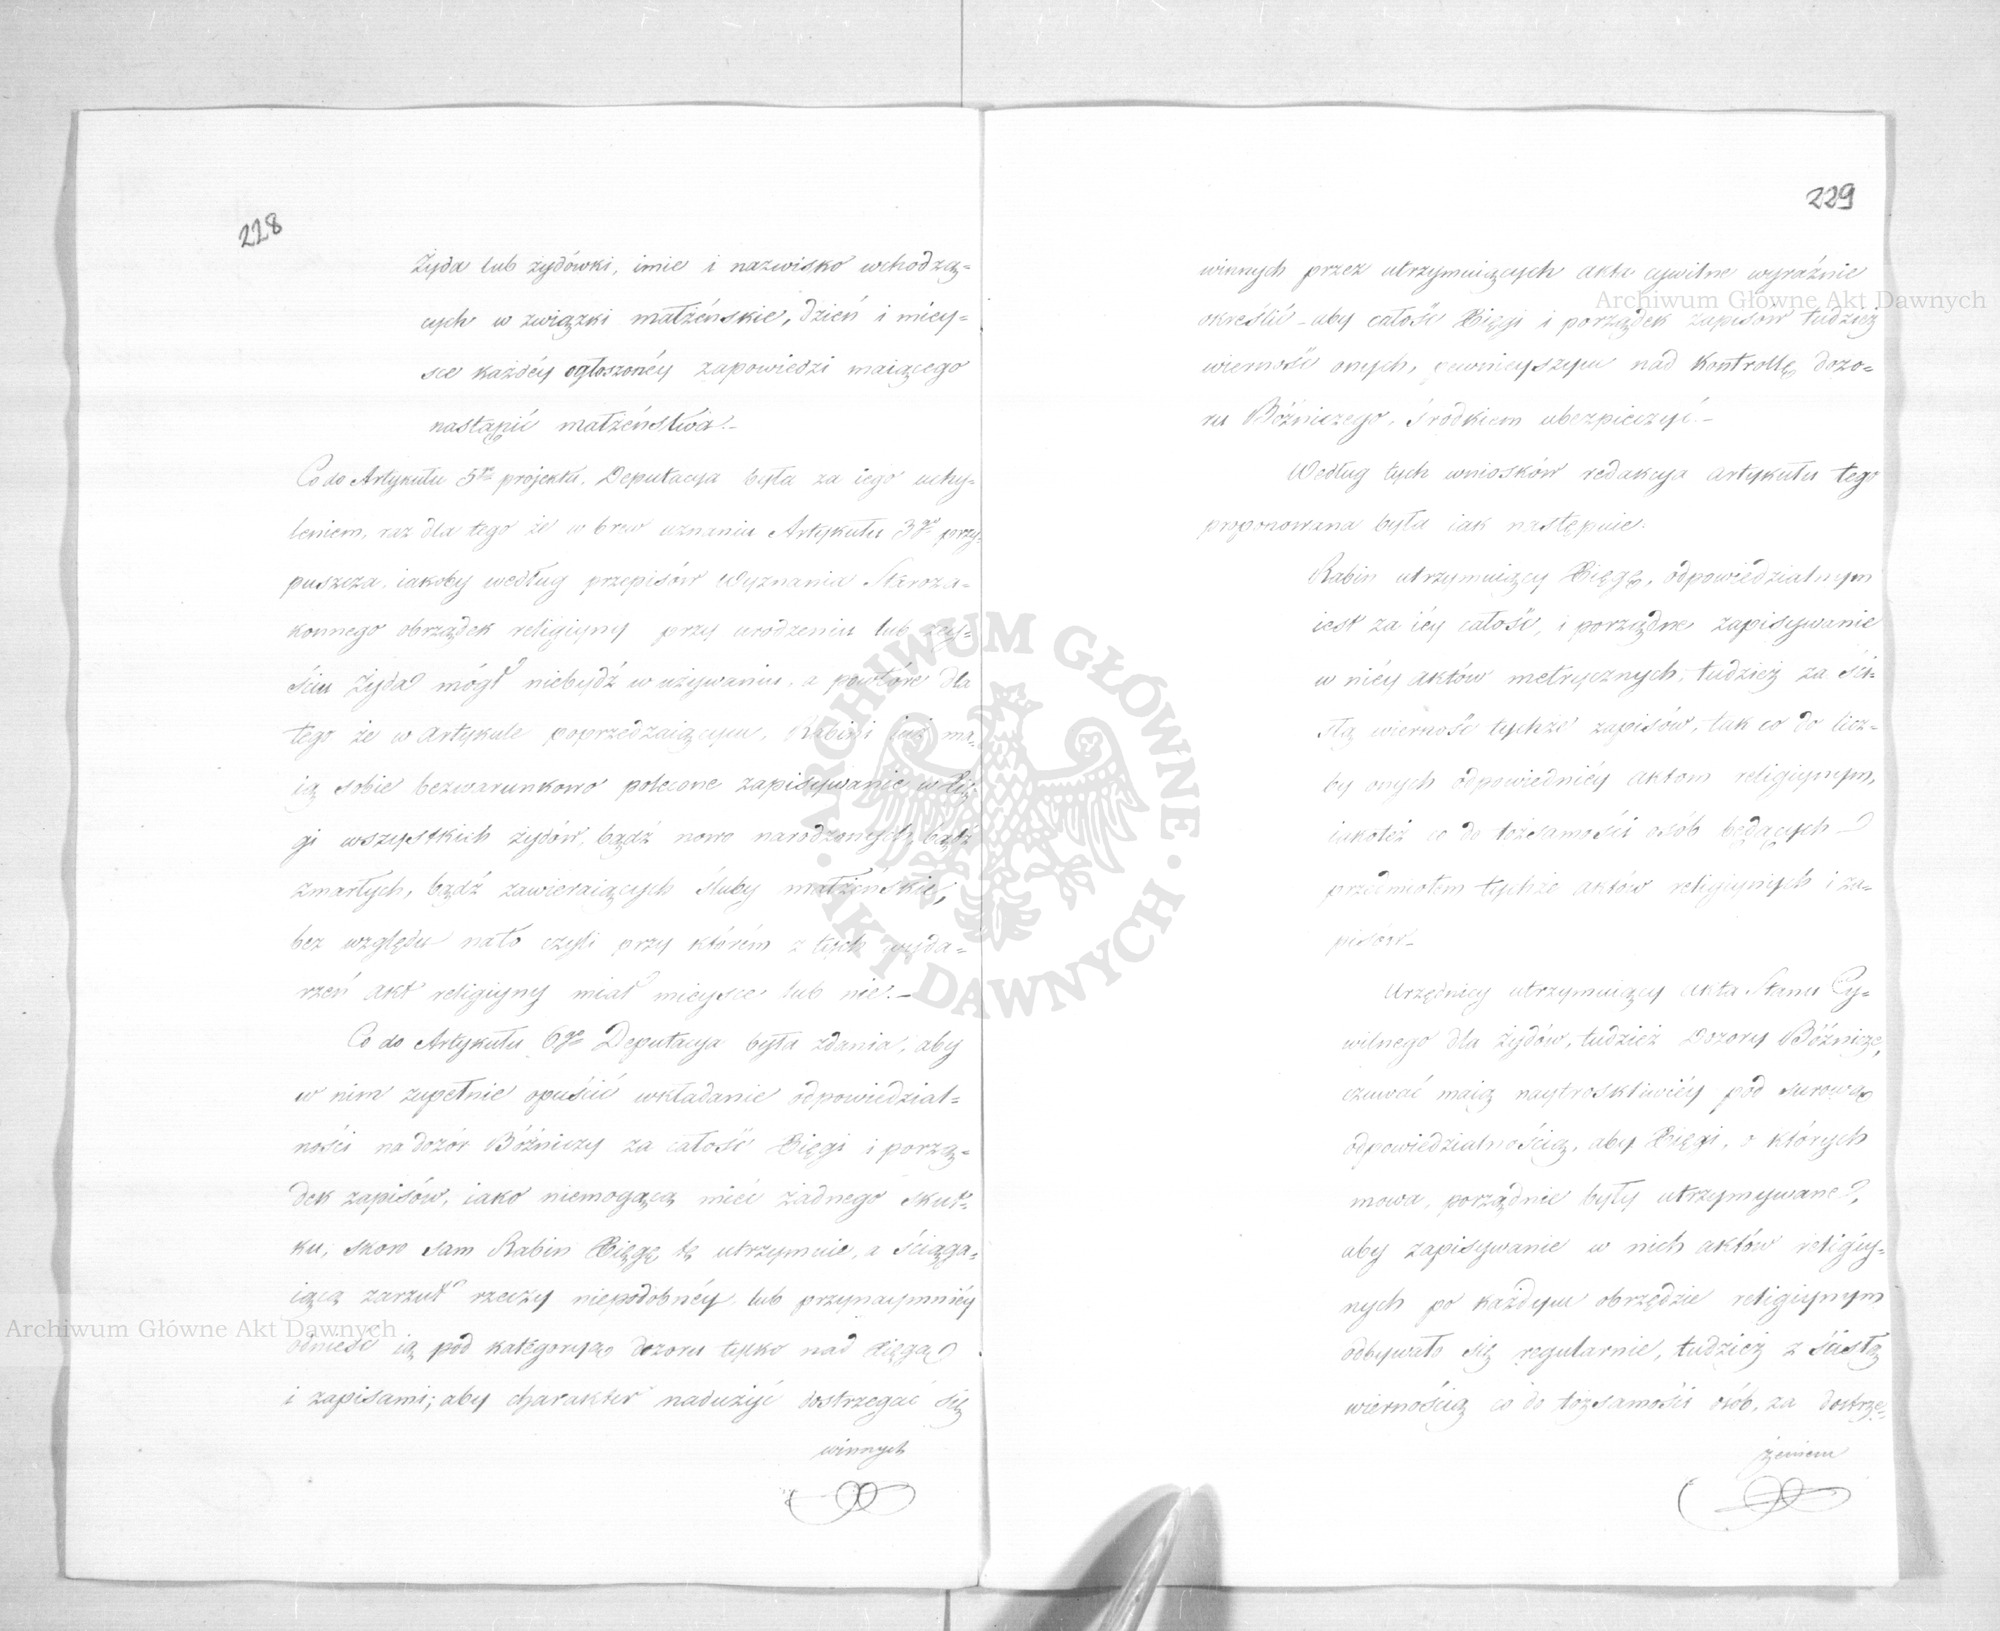 228
Żyda lub żydówki, imie i nazwisko wchodzą=
cych w związki małżeńskie, dzień i miey=
sce każdéy ogłoszonéy zapowiedzi maiącego
nastąpić małżeństwa.–
Co do Artykułu 5go projektu, Deputacya była za iego uchy=
leniem, raz dla tego że w brew uznaniu Artykułu 3go przy=
puszcza, iakoby według przepisów Wyznania Staroza=
konnego obrządek religiyny przy urodzeniu lub zey=
ściu Żyda mógł niebydź w używaniu, a powtóre dla
tego że w Artykule poprzedzaiącym, Rabini iuż ma=
ią sobie bezwarunkowo polecone zapisywanie w Xię
gi wszystkich żydów, bądź nowo narodzonych, bądź
zmarłych, bądź zawieraiących śluby małżeńskie,
bez względu na to czyli przy którém z tych wyda=
rzeń akt religiyny miał mieysce lub nie.–
Co do Artykułu 6go Deputacya była zdania, aby
w nim zupełnie opuścić wkładanie odpowiedzial=
ności na dozór Bóżniczy za całość Xięgi i porzą=
dek zapisów, iako niemogącą mieć żadnego skut=
ku, skoro sam Rabin Xięgę tę utrzymuie, a ściąga=
iącą zarzut rzeczy niepodobnéy lub przynaymniéy
odnieść ią pod kategoryą dozoru tylko nad Xięgą
i zapisami; aby charakter nadużyć dostrzegać się
winnych
229
winnych przez utrzymuiących akta cywilne wyraźnie
określić – aby całość Xięgi i porządek zapisów tudzież
wierność onych, pewnieyszym nad kontrollę dozo=
ru Bóżniczego, środkiem ubezpieczyć.–
Według tych wniosków redakcya artykułu tego
proponowana była iak następuie:
Rabin utrzymuiący Xięgę, odpowiedzialnym
iest za iéy całość, i porządne zapisywanie
w niéy aktów metrycznych, tudzież za ści=
słą wierność tychże zapisów, tak co do licz=
by onych odpowiednéy aktom religiynym,
iakoteż co do tożsamości osób będących
przedmiotem tychże aktów religiynych i za=
pisów.–
Urzędnicy utrzymuiący akta Stanu Cy=
wilnego dla żydów, tudzież Dozory Bóżnicze,
czuwać maią naytroskliwiéy pod surową
odpowiedzialnością, aby Xięgi, o których
mowa, porządnie były utrzymywane,
aby zapisywanie w nich aktów religiy=
nych po każdym obrzędzie religiynym
odbywało się regularnie, tudzież z ścisłą
wiernością co do tożsamości osób, za dostrze=
żeniem
Archiwum Główne Akt Dawnych
Archiwum Główne Akt Dawnych
ARCHIWUM GŁÓWNE · AKT DAWNYCH ·